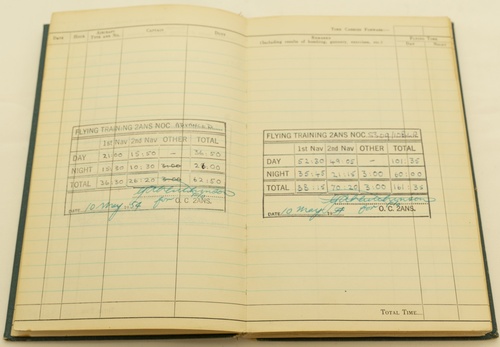 Date
Hour
Aircraft Type and No.
Duty
Time Carried Forward:—
Remarks
(Including results of bombing, gunnery, exercises, etc.)
Flying Time
Day
Night
FLYING TRAINING 2ANS NOC
1st Nav 2nd Nav OTHER TOTAL
DAY 21:00 15:50 – 36:50
NIGHT 10:30
TOTAL 36:30 26:20 62:50
for O.C. 2ANS.
DATE 10 May 54
FLYING TRAINING 2ANS NOC
1st Nav 2nd Nav OTHER TOTAL
DAY 52:30 49:05 – 101:35
NIGHT 35:45 21:15 3:00 60:00
TOTAL 88:15 70:20 3:00 161:35
for O.C. 2ANS.
DATE 10 May 54
Total Time...